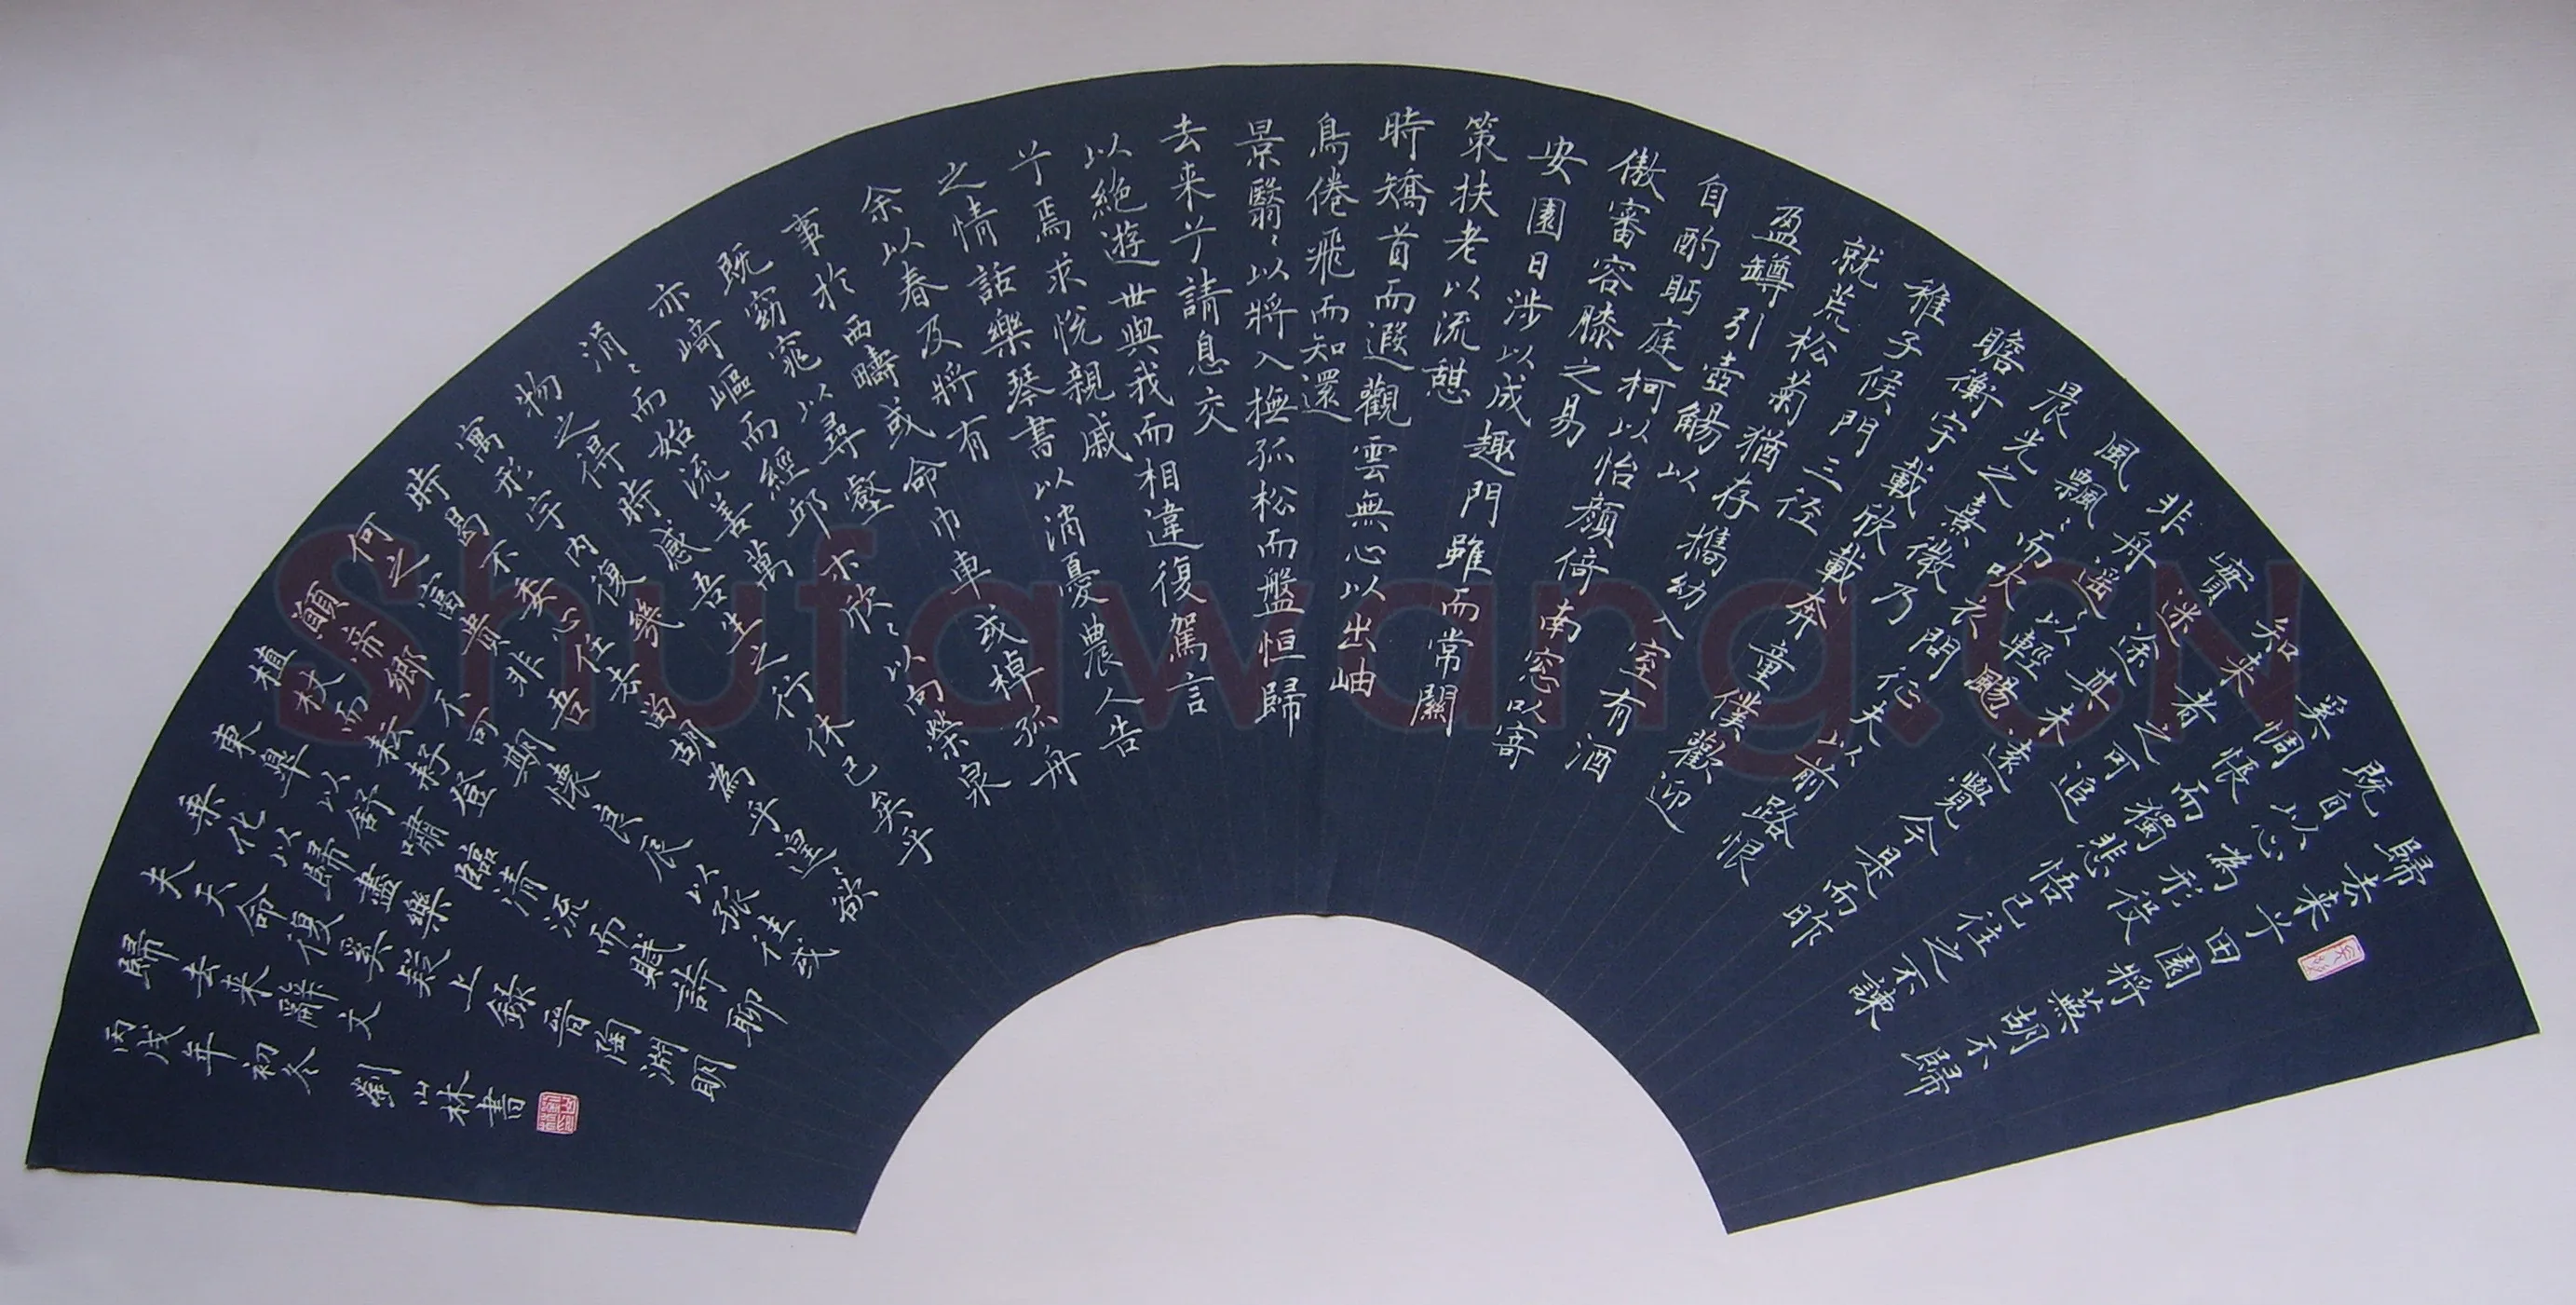 歸去来兮田園將蕪胡不歸
既自以心為形役
奚惆悵而獨悲悟已往之不諫
知来者之可追
實迷途其未遠覺今是而昨
非舟遥〻以輕颺
風飄〻而吹衣問征夫以前路恨
晨光之熹微乃
瞻衡宇載欣載奔童僕歡迎
稚子候門三径
就荒松菊猶存攜幼入室有酒
盈罇引壺觴以
自酌眄庭柯以怡顏倚南窓以寄
傲審容膝之易
安園日涉以成趣門雖而常關
策扶老以流憩
時矯首而遐觀雲無心以出岫
鳥倦飛而知還
景翳〻以將入撫孤松而盤恒歸
去来兮請息交
以絕遊世與我而相違復駕言
兮焉求悅親戚
之情話樂琴書以消憂農人告
余以春及將有
事於西疇或命巾車或棹孤舟
既窈窕以尋壑
亦崎嶇而經邱木欣〻以向榮泉
涓〻而始流善萬
物之得時感吾生之行休已矣乎
寓形宇内復幾
時曷不委心任去留胡為乎遑〻欲
何之富貴非吾
願帝鄉不可期懷良辰以孤往或
植杖而耘耔登
東皐以舒嘯臨清流而賦詩聊
乘化以歸盡樂
夫天命復奚疑上錄晉陶淵明
歸去来辭文
丙戌年初冬劉山林書
Shufawang.CN